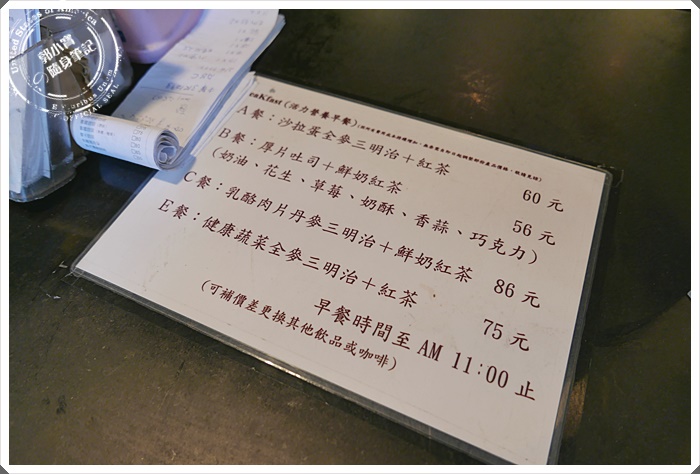 郭小寶
隨身筆記
eaKfast (活力營養早餐)
A餐：沙拉蛋全麥三明治＋紅茶 60元
B餐：厚片吐司＋鮮奶紅茶 56元
(奶油、花生、草莓、奶酥、香蒜、巧克力)
C餐：乳酪肉片丹麥三明治＋鮮奶紅茶 86元
E餐：健康蔬菜全麥三明治＋紅茶 75元
早餐時間至AM 11:00止
(可補價差更換其他飲品或咖啡)